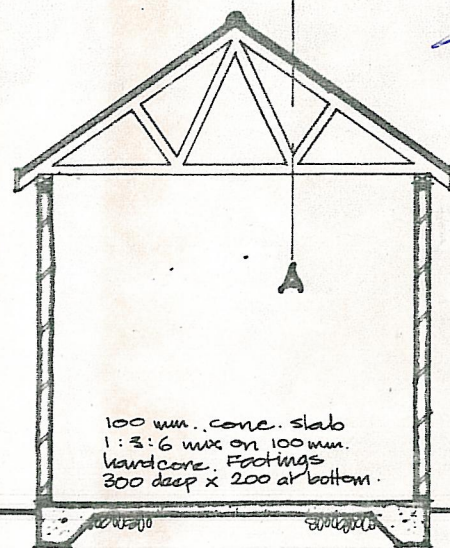 100 mm. conc. slab
1:3:6 mix on 100 mm.
hardcore. Footings
300 deep x 200 at bottom.